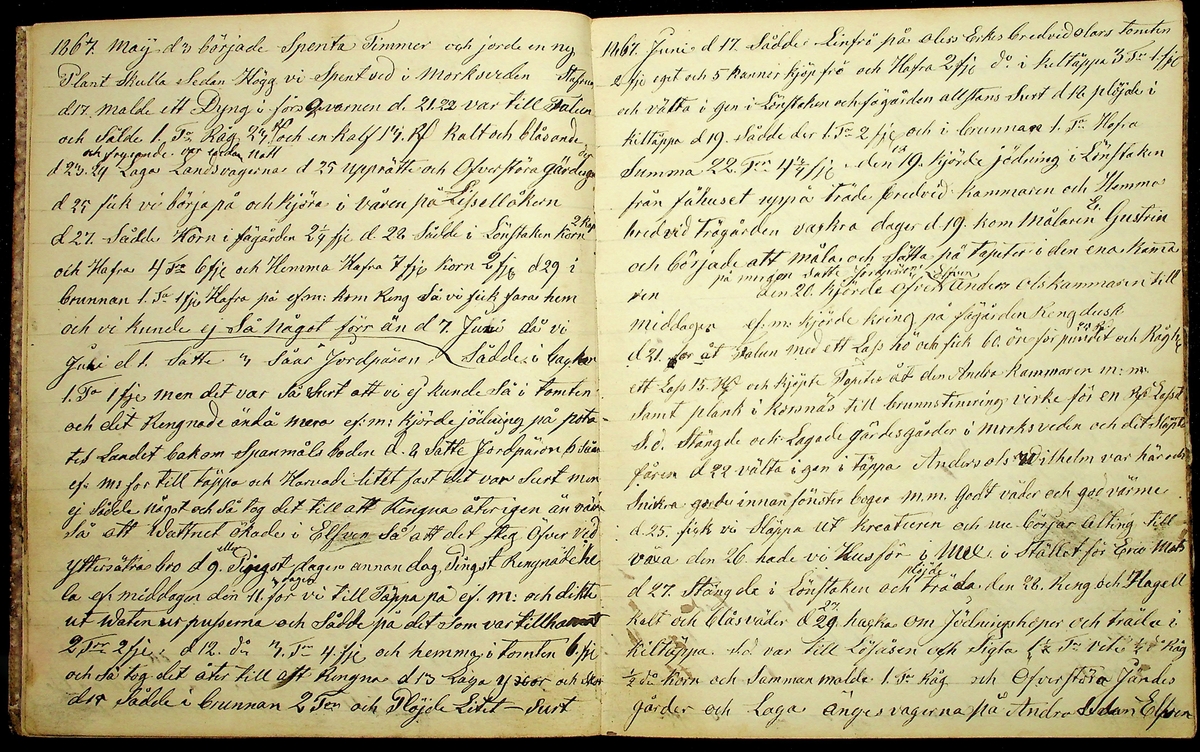 1867. May d 3 började Spenta Timmer och jorde en ny
Plant Skulla Sedan Högg vi Spent ved i Morksveden
d 17. malde ett Dyng i förs qvarnen d. 21.22 var till Falun
och Sålde 1. Tn Råg och en kalf kalt och blåsande
och frysende var ratt
d 23. 24 Laga Landsvagerna d 25 upprätte och Öfverstöra gärdesgår
d 25 fick vi börja på och kjöra i våren på Lissellåkern
d 27. Sådde Korn i fägården 2 1/4 fje d 28 Sådde i Lönstaken Korn 2 kap
och Hafra 4 Tn 6 fje och Hemma Hafra 7 fje Korn 2 fje d 29 i
brunnan 1. Tn 1 fje Hafra på ef.m: kom Reng Så vi fick fara hem
och vi kunde ej Så något förr än d 7 Juni då vi
Juni d 1. Satte 3 Såar Jordpäron Sådde i
1. Tn 1 fje men det var Så Surt att vi ej kunde Så i tomten
och det Rengnade ändå mera ef: m: kjörde jödning på pota
tes Landet bakom Spanmåls boden d. 6 Satte Jordpäron
ef: m: for till täppa och Harvade litet fast det var Surt men
ej Sådde något och Så tog det till att Rengna återigen
Så att Wattnet ökade i Elfven Så att det steg Öfver vid
yttersätra bro d 9. Pingst dagen annan dag Pingst Rengnade he
la ef: middagen den 11. for vi till Täppa på ef. m: och dikte
ut Waten ur pusserna och Sådde på det Som var till
2 Tn 2 fje. d 12. du 3. Tn 4 fje och hemma i tomten 6. fje
och Så tog det åter till att Rengna d 13 Laga och
d 14 Sådde i brunnan 2 Tn och Plöjde Litet – Surt
1867. Juni d 17. Sådde Linfrö på Olers Erks bredvid olars tomten
2 fje eget och 5 kannor kjöp frö och Hafra 2 fje då i kiltäppa 3 Tn 1 fje
och välta i gen i Lönstaken och fägården allstans Surt d 18 plöjde i
kiltäppa d 19. Sådde der 1. Tn 2 fje och i brunnan 1. Tn Hafra
Summa 22. Tn 4 fje den 19. kjörde jödning i Lönstaken
från fähuset uppå träde bredvid kammaren och Hemma
bredvid Trägården vackra dager d 19. kom målaren Er. Gustrin
och började att måla och Sätta på tapeter i den ena kamma
ren på mergen Satte Elfven
den 20. kjörde Öfver Anders Olskammaren till
middagen ef: m: kjörde kring på fägården Rengdusk
d 21. for åt Falun med ett Lass hö och fick 60. öre för pundet och
ett Lass 15. och kjöpte Tapeter åt den Andra kammaren m: m.
Samt plank i Korsnäs till brunnstimring virke för en Rd Lasst
S. d. Stängde och Lagade gärdesgårder i morksveden och det Släpte
fåren d 22 välta i gen i täppa Andersols Wilhelm var här och
Snikra gorde innan fönster boger m.m. Godt väder och god värme
d 25. fick vi Släpna ut kreaturen och nu börjar Alting till
växa den 26. hade vi Husför i Mxx i Stället för Eric Mats
d 27. Stängda i Lönstaken och plöjde träda. den 28. Reng och Hagell
kalt och blåsväder d 29 hacka om Jödningshöper och träda i
kiltäppa. s.d. var till Löfåsen och Sigta 1 1/2 Tn vete 1/2 du Råg
1/2 du Korn och Samman malde 1. Tn Råg och Öfverstöra Järdes
gårder och Laga ängesvagerna på Andra Sidan Elfven